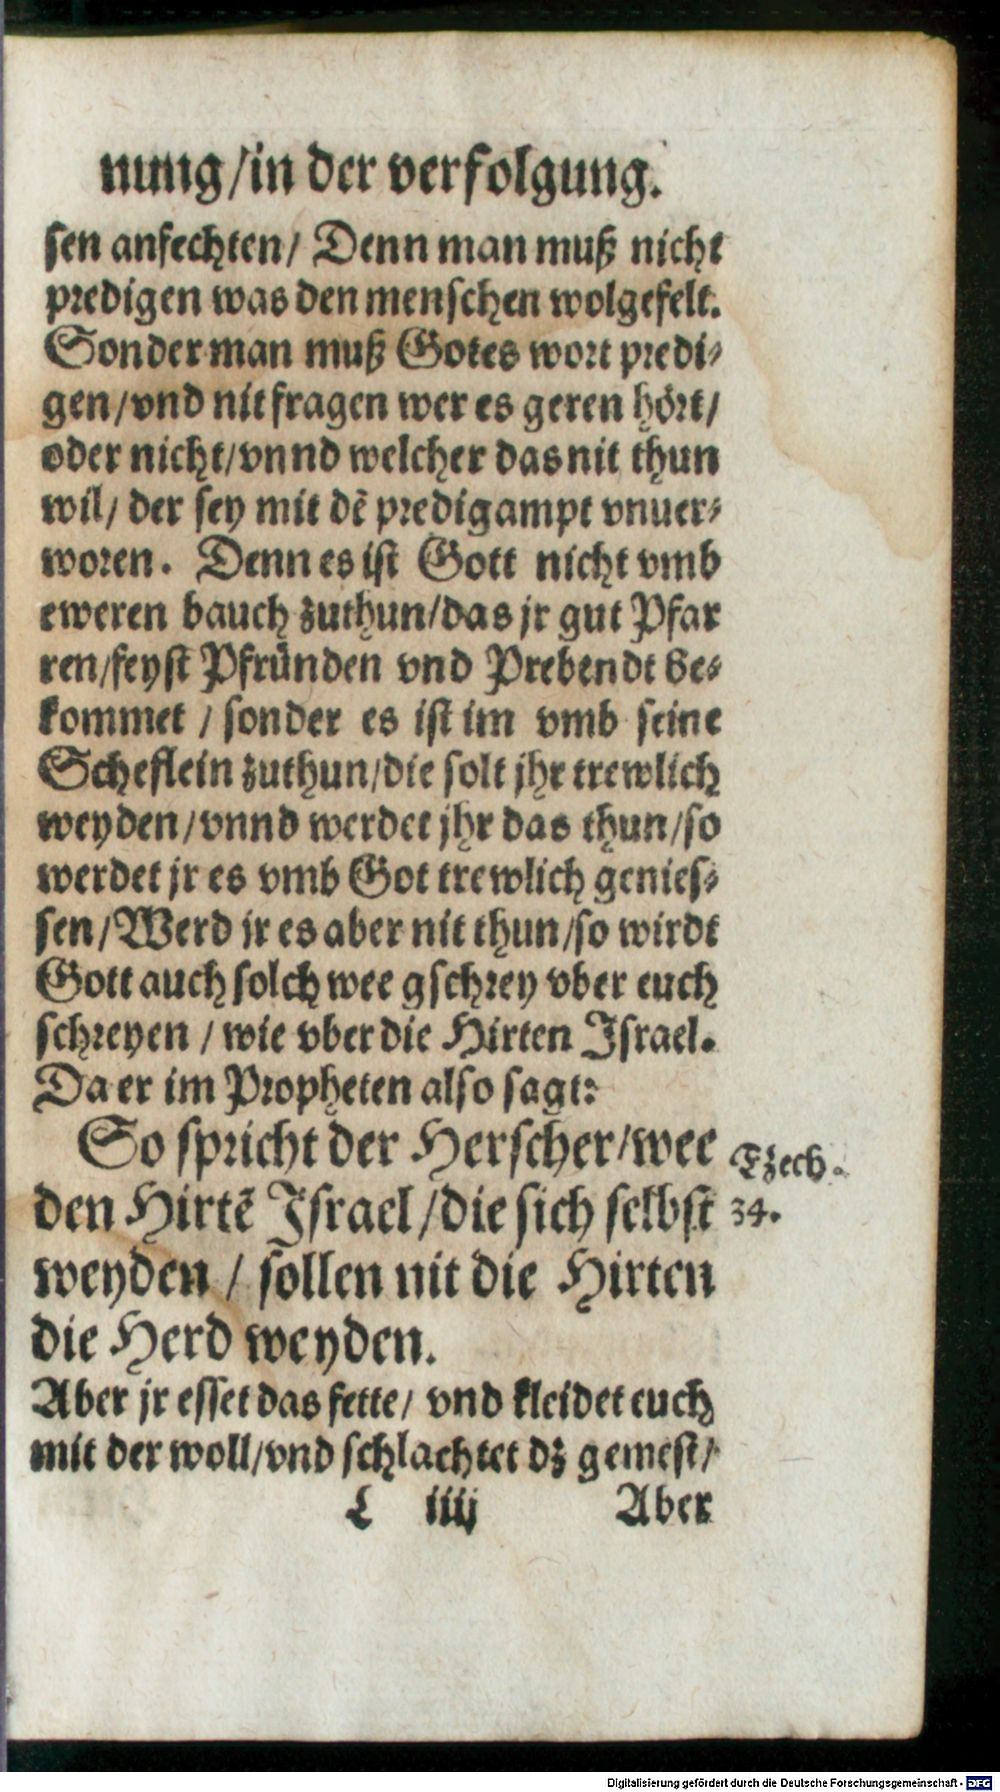 nung/in der verfolgung.
sen anfechten/ Denn man muß nicht
predigen was den menschen wolgefelt.
Sonder man muß Gotes wort predi-
gen/vnd nit fragen wer es geren hört/
oder nicht/vnnd welcher das nit thun
wil/ der sey mit dē predigampt vnuer-
woren. Denn es ist Gott nicht vmb
eweren bauch zuthun/das jr gut Pfar
ren/feyst Pfründen vnd Prebendt be-
kommet / sonder es ist im vmb seine
Scheflein zuthun/die solt jhr trewlich
weyden/vnnd werdet jhr das thun/so
werdet jr es vmb Got trewlich genies-
sen/Werd jr es aber nit thun/so wirdt
Gott auch solch wee gschrey vber euch
schreyen / wie vber die Hirten Israel.
Da er im Propheten also sagt:
So spricht der Herscher/wee
den Hirtē Israel/die sich selbst
weyden / sollen nit die Hirten
die Herd weyden.
Ezech.
34.
Aber jr esset das fette/ vnd kleidet euch
mit der woll/vnd schlachtet dz gemest/
L iiij Aber
Digitalisierung gefördert durch die Deutsche Forschungsgemeinschaft - DFG